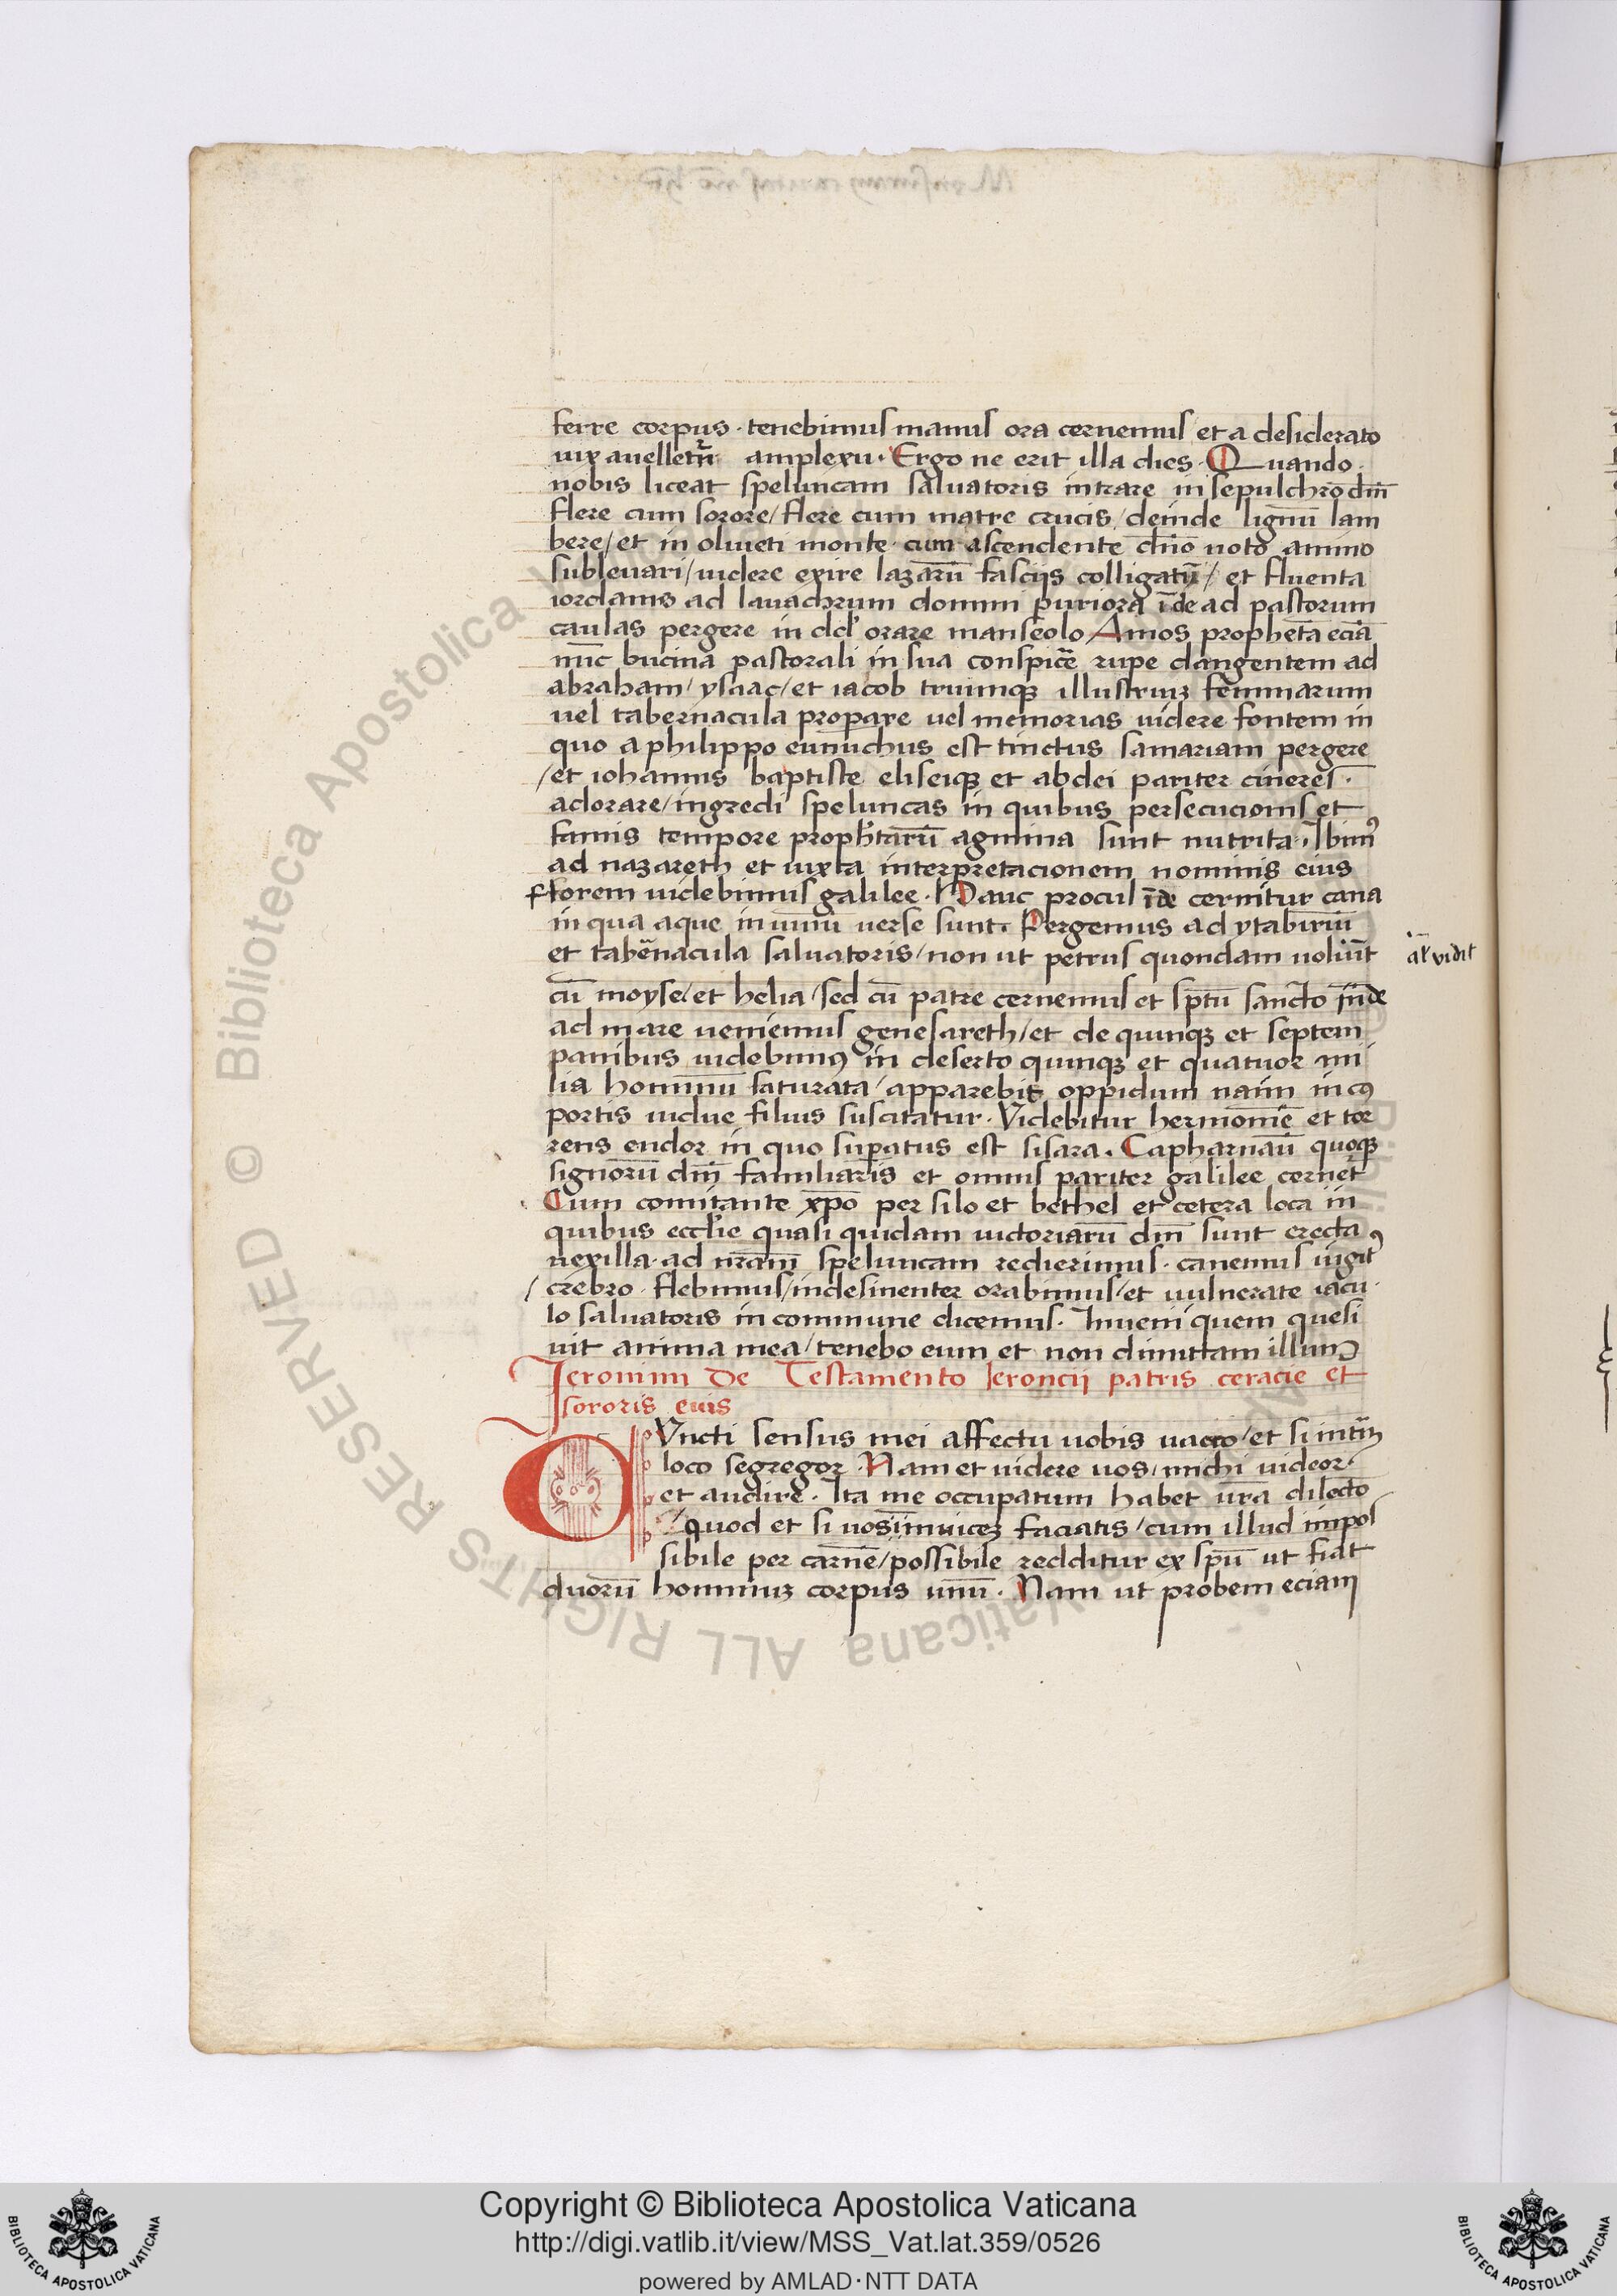 ferre corpus · tenebimus manus ora cernemus et a desiderato
uix auellem̃ amplexu · Ergo ne erit illa dies · Quando
nobis liceat speluncam saluatoris intrare in sepulchro dm̄
flere cum sorore / flere cum matre crucis / deinde lignū lam
bere / et in oliueti monte · cum ascendente dn̄o uoto animo
subleuari / uidere exire lazarū fasciis colligatū / et fluenta
iordanis ad lauachrum domini puriora īde ad pastorum
caulas pergere in dd' orare manseolo Amos propheta eciā
nūc bucina pastorali in sua conspicē rupe clangentem ad
abraham / ysaac / et iacob triumqȝ illustriuȝ feminarum
uel tabernacula properare uel memorias uidere fontem in
quo a philippo eunuchus est tinctus samariam pergere
/ et iohannis baptiste eliseiqȝ et abdei pariter cineres ·
adorare / ingredi speluncas in quibus persecucionis et
famis tempore proph'tarū agmina sunt nutrita · Ibimꝰ
ad nazareth et iuxta interpretacionem nominis eius
florem uidebimus galilee · Hauc procul īde cernitur cana
in qua aque in uinū uerse sunt · Pergemus ad ytabiriū
et tab̄enacula saluatoris / non ut petrus quondam uoluīt
al' vidit
cū moyse / et helia / sed cū patre cernemus et sp̄tū sancto īnde
ad mare ueniemus genesareth / et de quinqȝ et septem
panibus uidebimꝰ in deserto quinqȝ et quatuor mi
lia hominū saturata / apparebit oppidum naim in cꝰ
portis uidue filius suscitatur · Videbitur hermoniē et tor
rens endor in quo sup̄atus est sisara · Capharnaū quoqȝ
signorū dm̄ familiaris et omnis pariter galilee cernet̃
Cum comitante xp̄o per silo et bethel et cetera loca in
quibus eccl'ie quasi quidam uictoriarū dm̄ sunt erecta
uexilla · ad nr̄am speluncam redierimus · canemus iugitꝰ
/ crebro · flebimus / indesinenter orabimus / et uulnerate iacu
lo saluatoris in commune dicemus · Inueni quem quesi
uit anima mea / tenebo eum et non dimittam illum
Ieronimi de Testamento Ieroncii patris ceracie et
sororis eius
CVncti sensus mei affectu uobis uacco / et si intīȝ
loco segregor · Nam et uidere uos / michi uideor ·
et audire · Ita me occupatum habet ur̄a dilecto
quod et si uos inuiceȝ faciatis / cum illud impos
sibile per carnē / possibile redditur ex sp̄u ut fiat
duorū hominuȝ corpus unū · Nam ut probem eciam
Copyright © Biblioteca Apostolica Vaticana
http://digi.vatlib.it/view/MSS_Vat.lat.359/0526
powered by AMLAD·NTT DATA
BIBLIOTECA APOSTOLICA VATICANA
BIBLIOTECA APOSTOLICA VATICANA
© Biblioteca Apostolica Vaticana ALL RIGHTS RESERVED